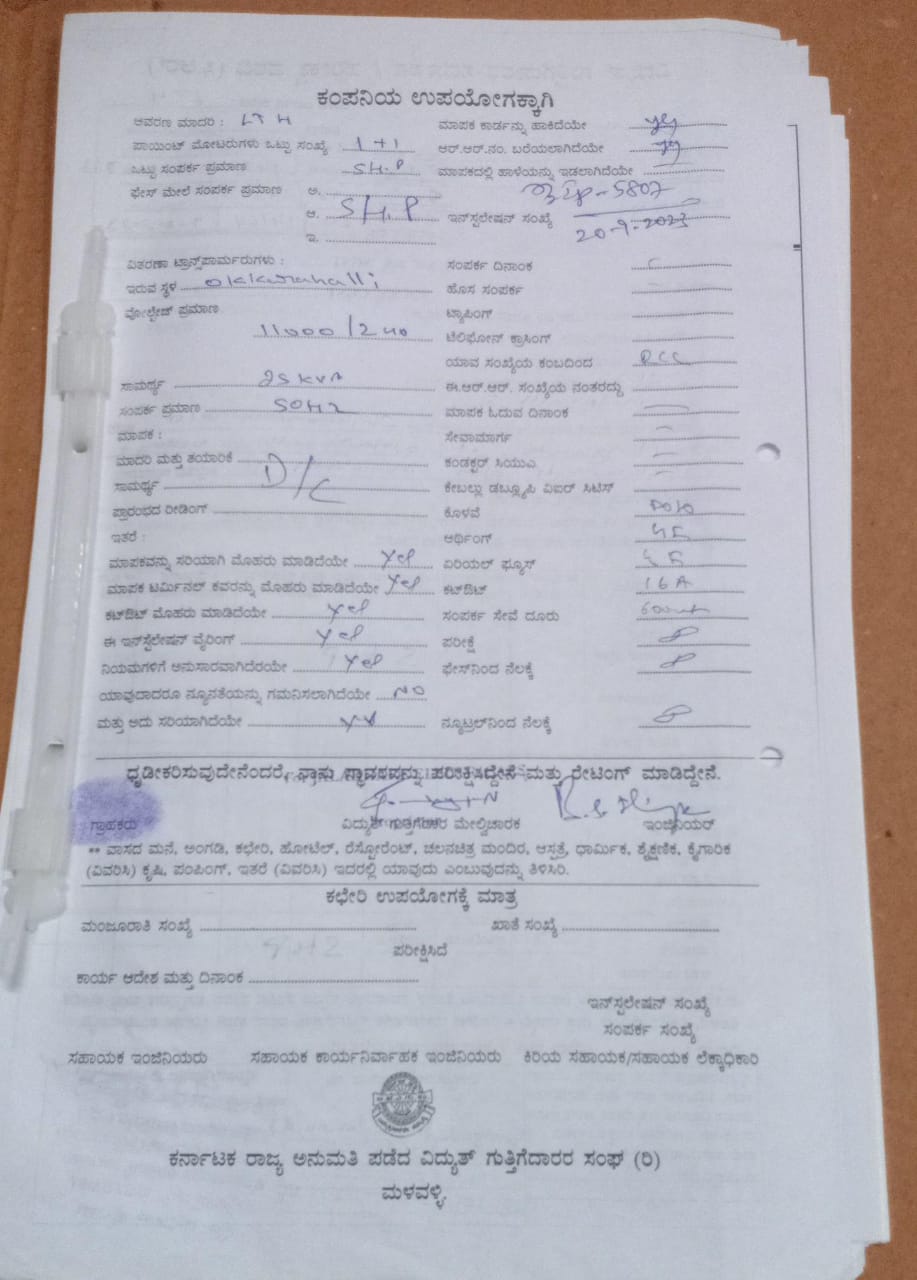 ಕಂಪನಿಯ ಉಪಯೋಗಕ್ಕಾಗಿ
ಆವರಣ ಮಾದರಿ : ಮಾಪಕ ಕಾರ್ಡನ್ನು ಹಾಕಿದೆಯೇ yes
ಪಾಯಿಂಟ್ ಮೋಟರುಗಳು ಒಟ್ಟು ಸಂಖ್ಯೆ 1+1 ಆರ್.ಆರ್.ನಂ. ಬರೆಯಲಾಗಿದೆಯೇ
ಒಟ್ಟು ಸಂಪರ್ಕ ಪ್ರಮಾಣ 5H.P ಮಾಪಕದಲ್ಲಿ ಹಾಳೆಯನ್ನು ಇಡಲಾಗಿದೆಯೇ
ಫೇಸ್ ಮೇಲೆ ಸಂಪರ್ಕ ಪ್ರಮಾಣ ಅ.
ಆ. 5H.P ಇನ್‌ಸ್ಪಲೇಷನ್ ಸಂಖ್ಯೆ 5807
20-9-2023
ಇ.
ವಿತರಣಾ ಟ್ರಾನ್ಸ್‌ಪಾರ್ಮರುಗಳು : ಸಂಪರ್ಕ ದಿನಾಂಕ
ಇರುವ ಸ್ಥಳ ಹೊಸ ಸಂಪರ್ಕ
ವೋಲ್ಟೇಜ್ ಪ್ರಮಾಣ ಟ್ಯಾಪಿಂಗ್
11000/240 ಟೆಲಿಫೋನ್ ಕ್ರಾಸಿಂಗ್
ಯಾವ ಸಂಖ್ಯೆಯ ಕಂಬದಿಂದ
ಸಾಮರ್ಥ್ಯ 25 KVA ಈ.ಆರ್.ಆರ್. ಸಂಖ್ಯೆಯ ನಂತರದ್ದು
ಸಂಪರ್ಕ ಪ್ರಮಾಣ 50HZ ಮಾಪಕ ಓದುವ ದಿನಾಂಕ
ಮಾಪಕ : ಸೇವಾಮಾರ್ಗ
ಮಾದರಿ ಮತ್ತು ತಯಾರಿಕೆ D/C ಕಂಡಕ್ಟರ್ ಸಿಯುಎ
ಸಾಮರ್ಥ್ಯ ಕೇಬಲ್ಲು ಡಬ್ಲ್ಯೂಪಿ ವಿಐರ್ ಸಿಟಿಸ್
ಪ್ರಾರಂಭದ ರೀಡಿಂಗ್ ಕೊಳವೆ
ಇತರೆ : ಆರ್ಥಿಂಗ್
ಮಾಪಕವನ್ನು ಸರಿಯಾಗಿ ಮೊಹರು ಮಾಡಿದೆಯೇ Yes ಏರಿಯಲ್ ಫ್ಯೂಸ್
ಮಾಪಕ ಟರ್ಮಿನಲ್ ಕವರನ್ನು ಮೊಹರು ಮಾಡಿದೆಯೇ Yes ಕಟ್‌ಔಟ್ 16A
ಕಟ್‌ಔಟ್ ಮೊಹರು ಮಾಡಿದೆಯೇ Yes ಸಂಪರ್ಕ ಸೇವೆ ದೂರು
ಈ ಇನ್‌ಸ್ಟೆಲೇಷನ್ ವೈರಿಂಗ್ Yes ಪರೀಕ್ಷೆ
ನಿಯಮಗಳಿಗೆ ಅನುಸಾರವಾಗಿದೆರಯೇ Yes ಫೇಸ್‌ನಿಂದ ನೆಲಕ್ಕೆ
ಯಾವುದಾದರೂ ನ್ಯೂನತೆಯನ್ನು ಗಮನಿಸಲಾಗಿದೆಯೇ NO
ಮತ್ತು ಅದು ಸರಿಯಾಗಿದೆಯೇ ನ್ಯೂಟ್ರಲ್‌ನಿಂದ ನೆಲಕ್ಕೆ
ಧೃಡೀಕರಿಸುವುದೇನೆಂದರೆ, ನಾನು ಸ್ಥಾವರವನ್ನು ಪರೀಕ್ಷಿಸಿದ್ದೇನೆ ಮತ್ತು ರೇಟಿಂಗ್ ಮಾಡಿದ್ದೇನೆ.
ಗ್ರಾಹಕರು ವಿದ್ಯುತ್ ಗುತ್ತಿಗೆದಾರರ ಮೇಲ್ವಿಚಾರಕ ಇಂಜಿನಿಯರ್
** ವಾಸದ ಮನೆ, ಅಂಗಡಿ, ಕಛೇರಿ, ಹೋಟೆಲ್, ರೆಸ್ಟೋರೆಂಟ್, ಚಲನಚಿತ್ರ ಮಂದಿರ, ಆಸ್ಪತ್ರೆ, ಧಾರ್ಮಿಕ, ಶೈಕ್ಷಣಿಕ, ಕೈಗಾರಿಕ
(ವಿವರಿಸಿ) ಕೃಷಿ, ಪಂಪಿಂಗ್, ಇತರೆ (ವಿವರಿಸಿ) ಇದರಲ್ಲಿ ಯಾವುದು ಎಂಬುವುದನ್ನು ತಿಳಿಸಿರಿ.
ಕಛೇರಿ ಉಪಯೋಗಕ್ಕೆ ಮಾತ್ರ
ಮಂಜೂರಾತಿ ಸಂಖ್ಯೆ ಖಾತೆ ಸಂಖ್ಯೆ
ಪರೀಕ್ಷಿಸಿದೆ
ಕಾರ್ಯ ಆದೇಶ ಮತ್ತು ದಿನಾಂಕ
ಇನ್‌ಸ್ಪಲೇಷನ್ ಸಂಖ್ಯೆ
ಸಂಪರ್ಕ ಸಂಖ್ಯೆ
ಸಹಾಯಕ ಇಂಜಿನಿಯರು ಸಹಾಯಕ ಕಾರ್ಯನಿರ್ವಾಹಕ ಇಂಜಿನಿಯರು ಕಿರಿಯ ಸಹಾಯಕ/ಸಹಾಯಕ ಲೆಕ್ಕಾಧಿಕಾರಿ
ಕರ್ನಾಟಕ ರಾಜ್ಯ ಅನುಮತಿ ಪಡೆದ ವಿದ್ಯುತ್ ಗುತ್ತಿಗೆದಾರರ ಸಂಘ (ರಿ)
ಮಳವಳ್ಳಿ.